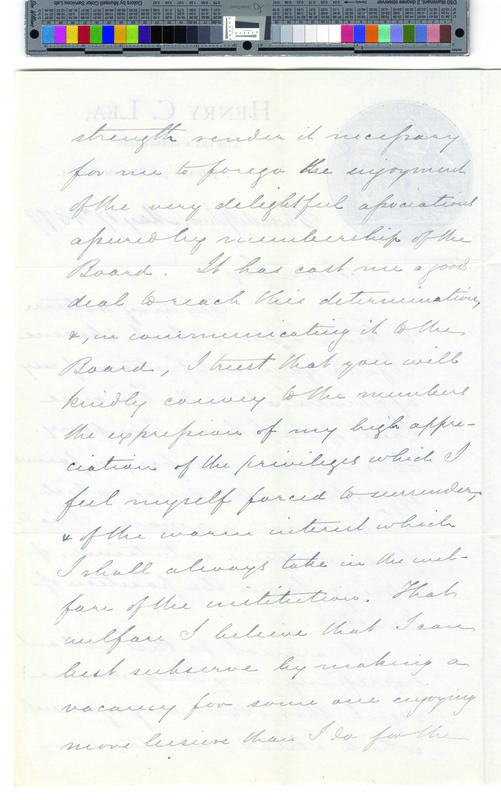 strength render it necessary
for me to forego the enjoyment
of the very delightful associations
assured by membership of the
Board. It has cost me a good
deal to reach this determination,
&, in communicating it to the
Board, I trust that you will
kindly convey to the members
the expression of my high appre-
ciation of the privileges which I
feel myself forced to surrender,
& of the warm interest which
I shall always take in the wel-
fare of the institution. That
welfare I believe that I can
best subserve by making a
vacancy for some one enjoying
more leisure than I do for the
HENRY C. LEA,